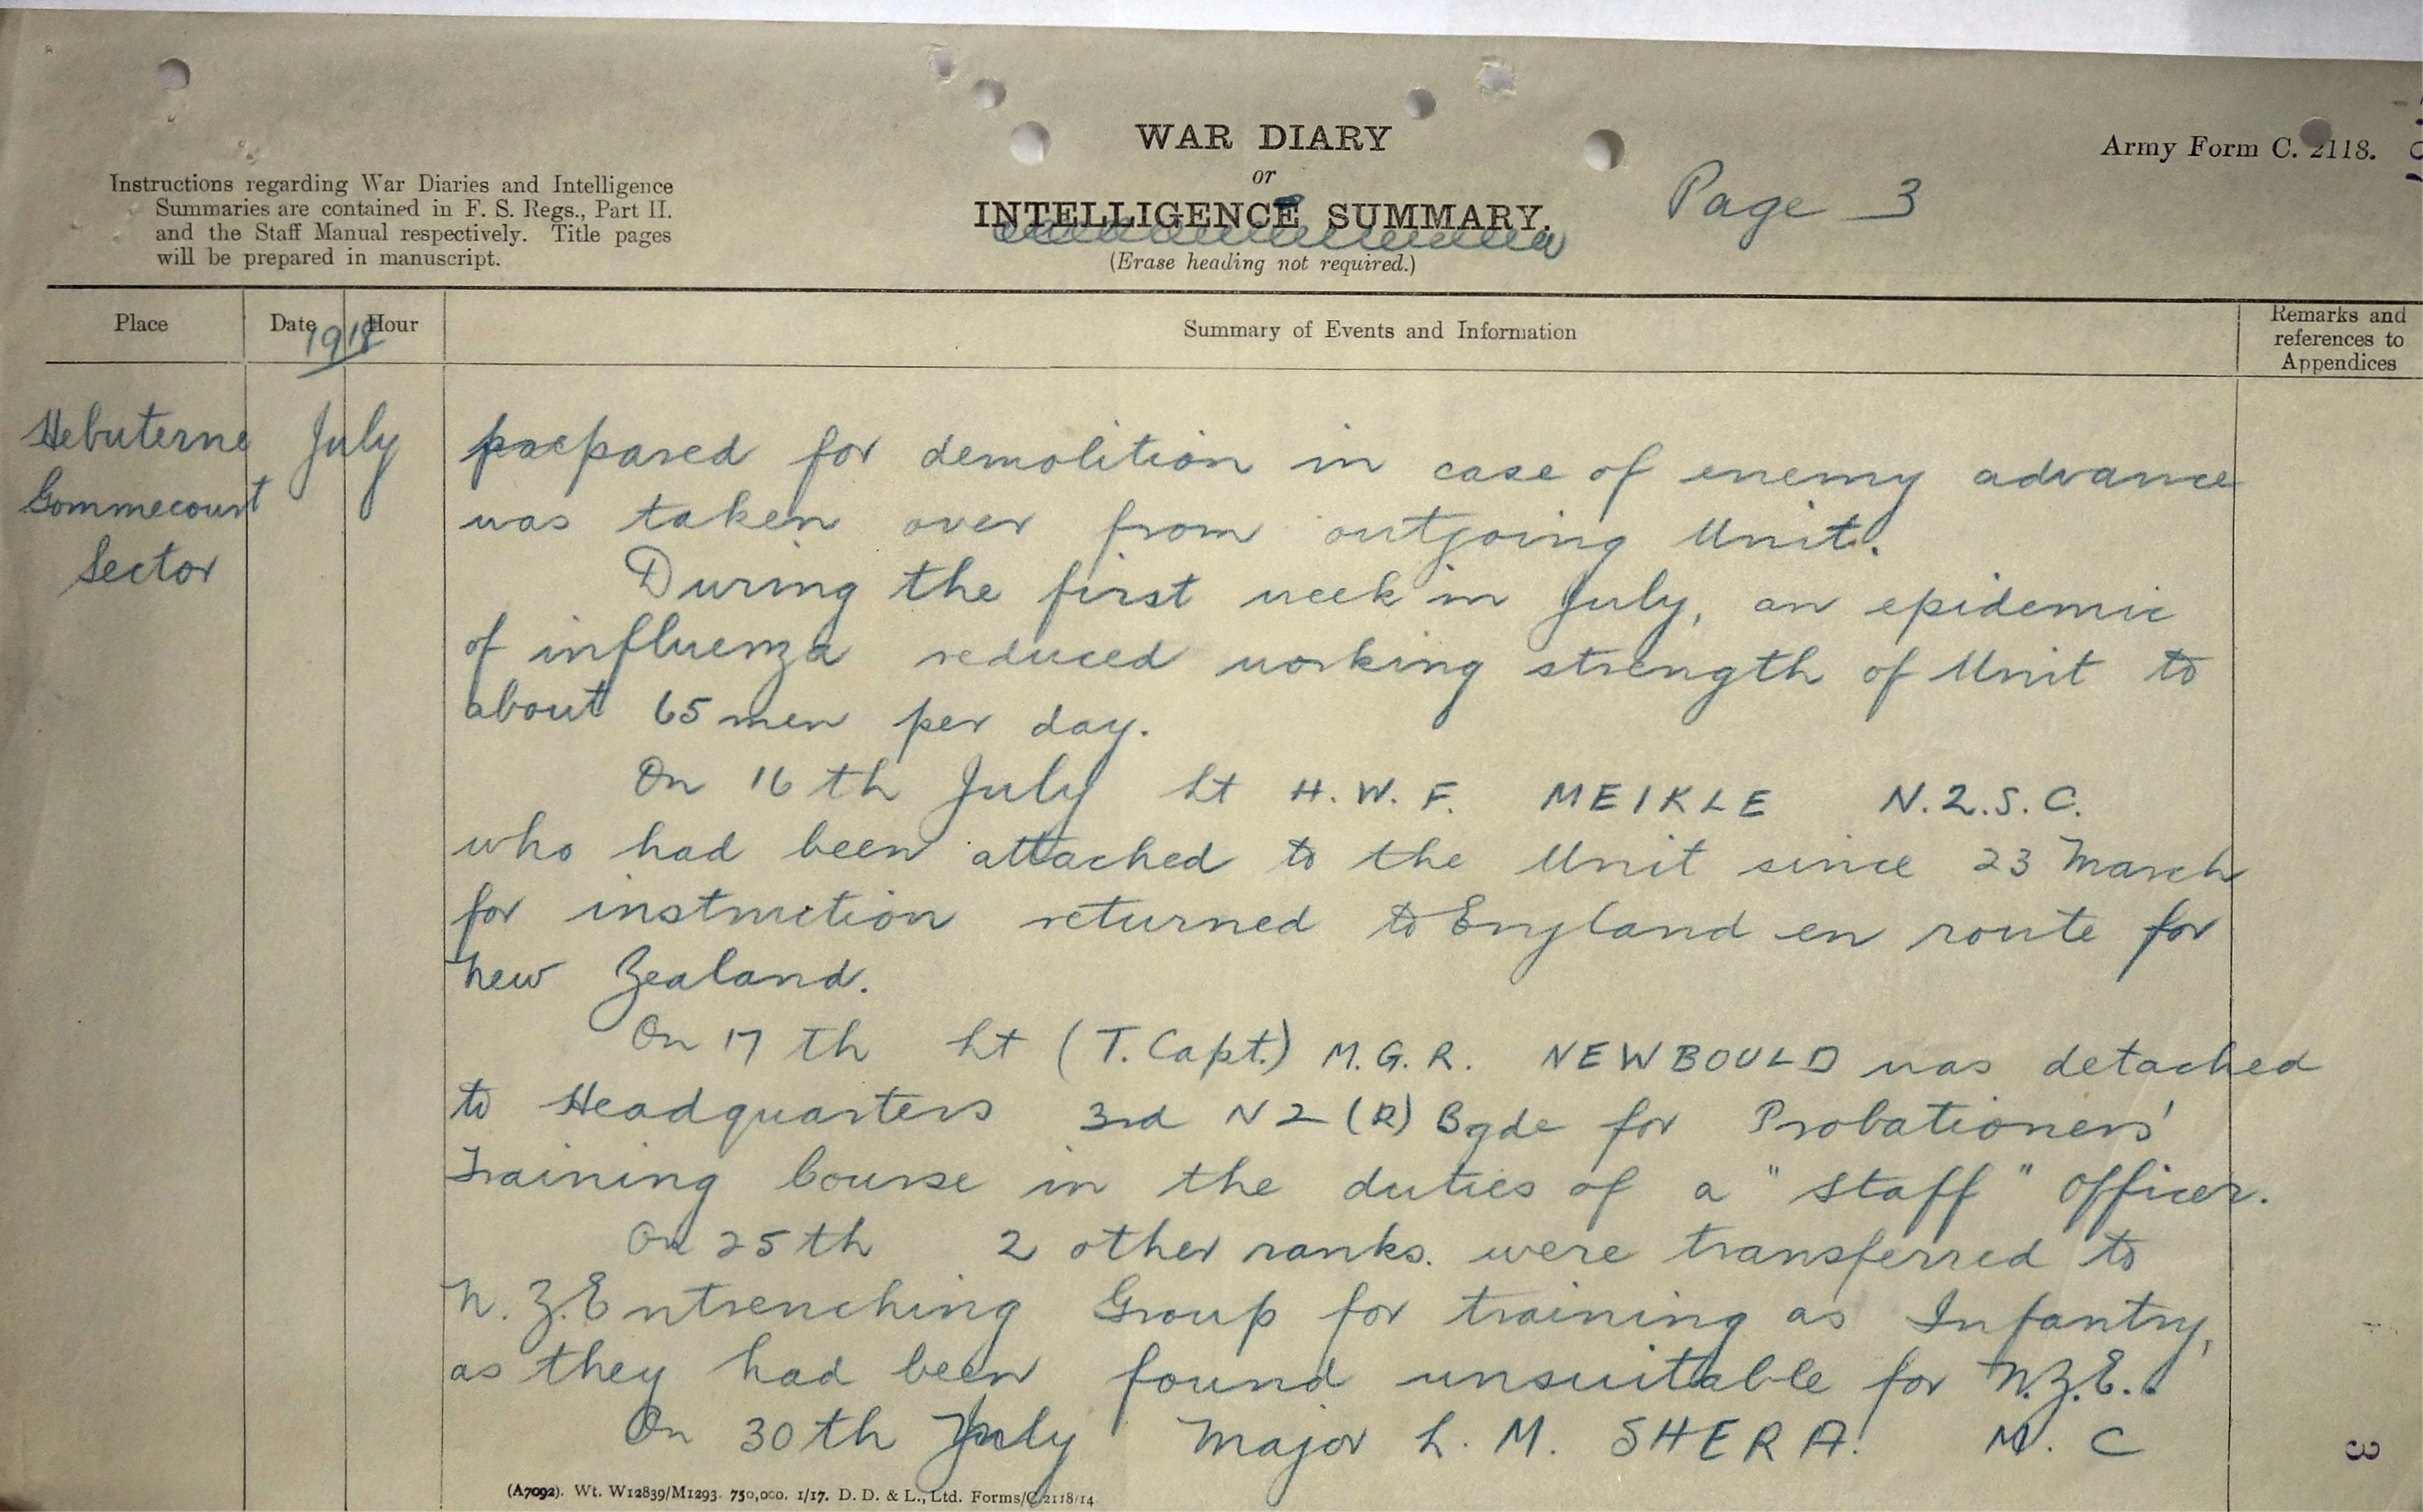 WAR DIARY
or
INTELLIGENCE SUMMARY.
(Erase heading not required.)
Page 3
Army Form C. 2118.
Instructions regarding War Diaries and Intelligence
Summaries are contained in F. S. Regs., Part II.
and the Staff Manual respectively. Title pages
will be prepared in manuscript.
Place
Date
Hour
1918
Summary of Events and Information
Remarks and
references to
Appendices
Hebuterne
Gommecourt
Sector
July
prepared for demolition in case of enemy advance
was taken over from outgoing Unit.
During the first week in July, an epidemic
of influenza reduced working strength of Unit to
about 65 men per day.
On 16th July Lt H.W.F. MEIKLE N.Z.S.C.
who had been attached to the Unit since 23 March
for instruction returned to England en route for
New Zealand.
On 17th Lt (T. Capt.) M.G.R. NEWBOULD was detached
to Headquarters 3rd NZ (R) Bgde for Probationers'
Training Course in the duties of a "Staff" Officer.
On 25th 2 other ranks. were transferred to
N.Z. Entrenching Group for training as Infantry,
as they had been found unsuitable for N.Z.E..
On 30th July Major L. M. SHERA. M.C
(A7092). Wt. W12839/M1293. 750,000. 1/17. D. D. & L., Ltd. Forms/C.2118/14
3